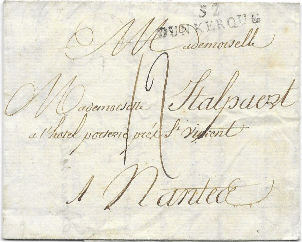 52
DUNKERQUE
Mademoiselle
12
Mademoiselle Stalpaert
a l'hotel près St vincent
a Nantes